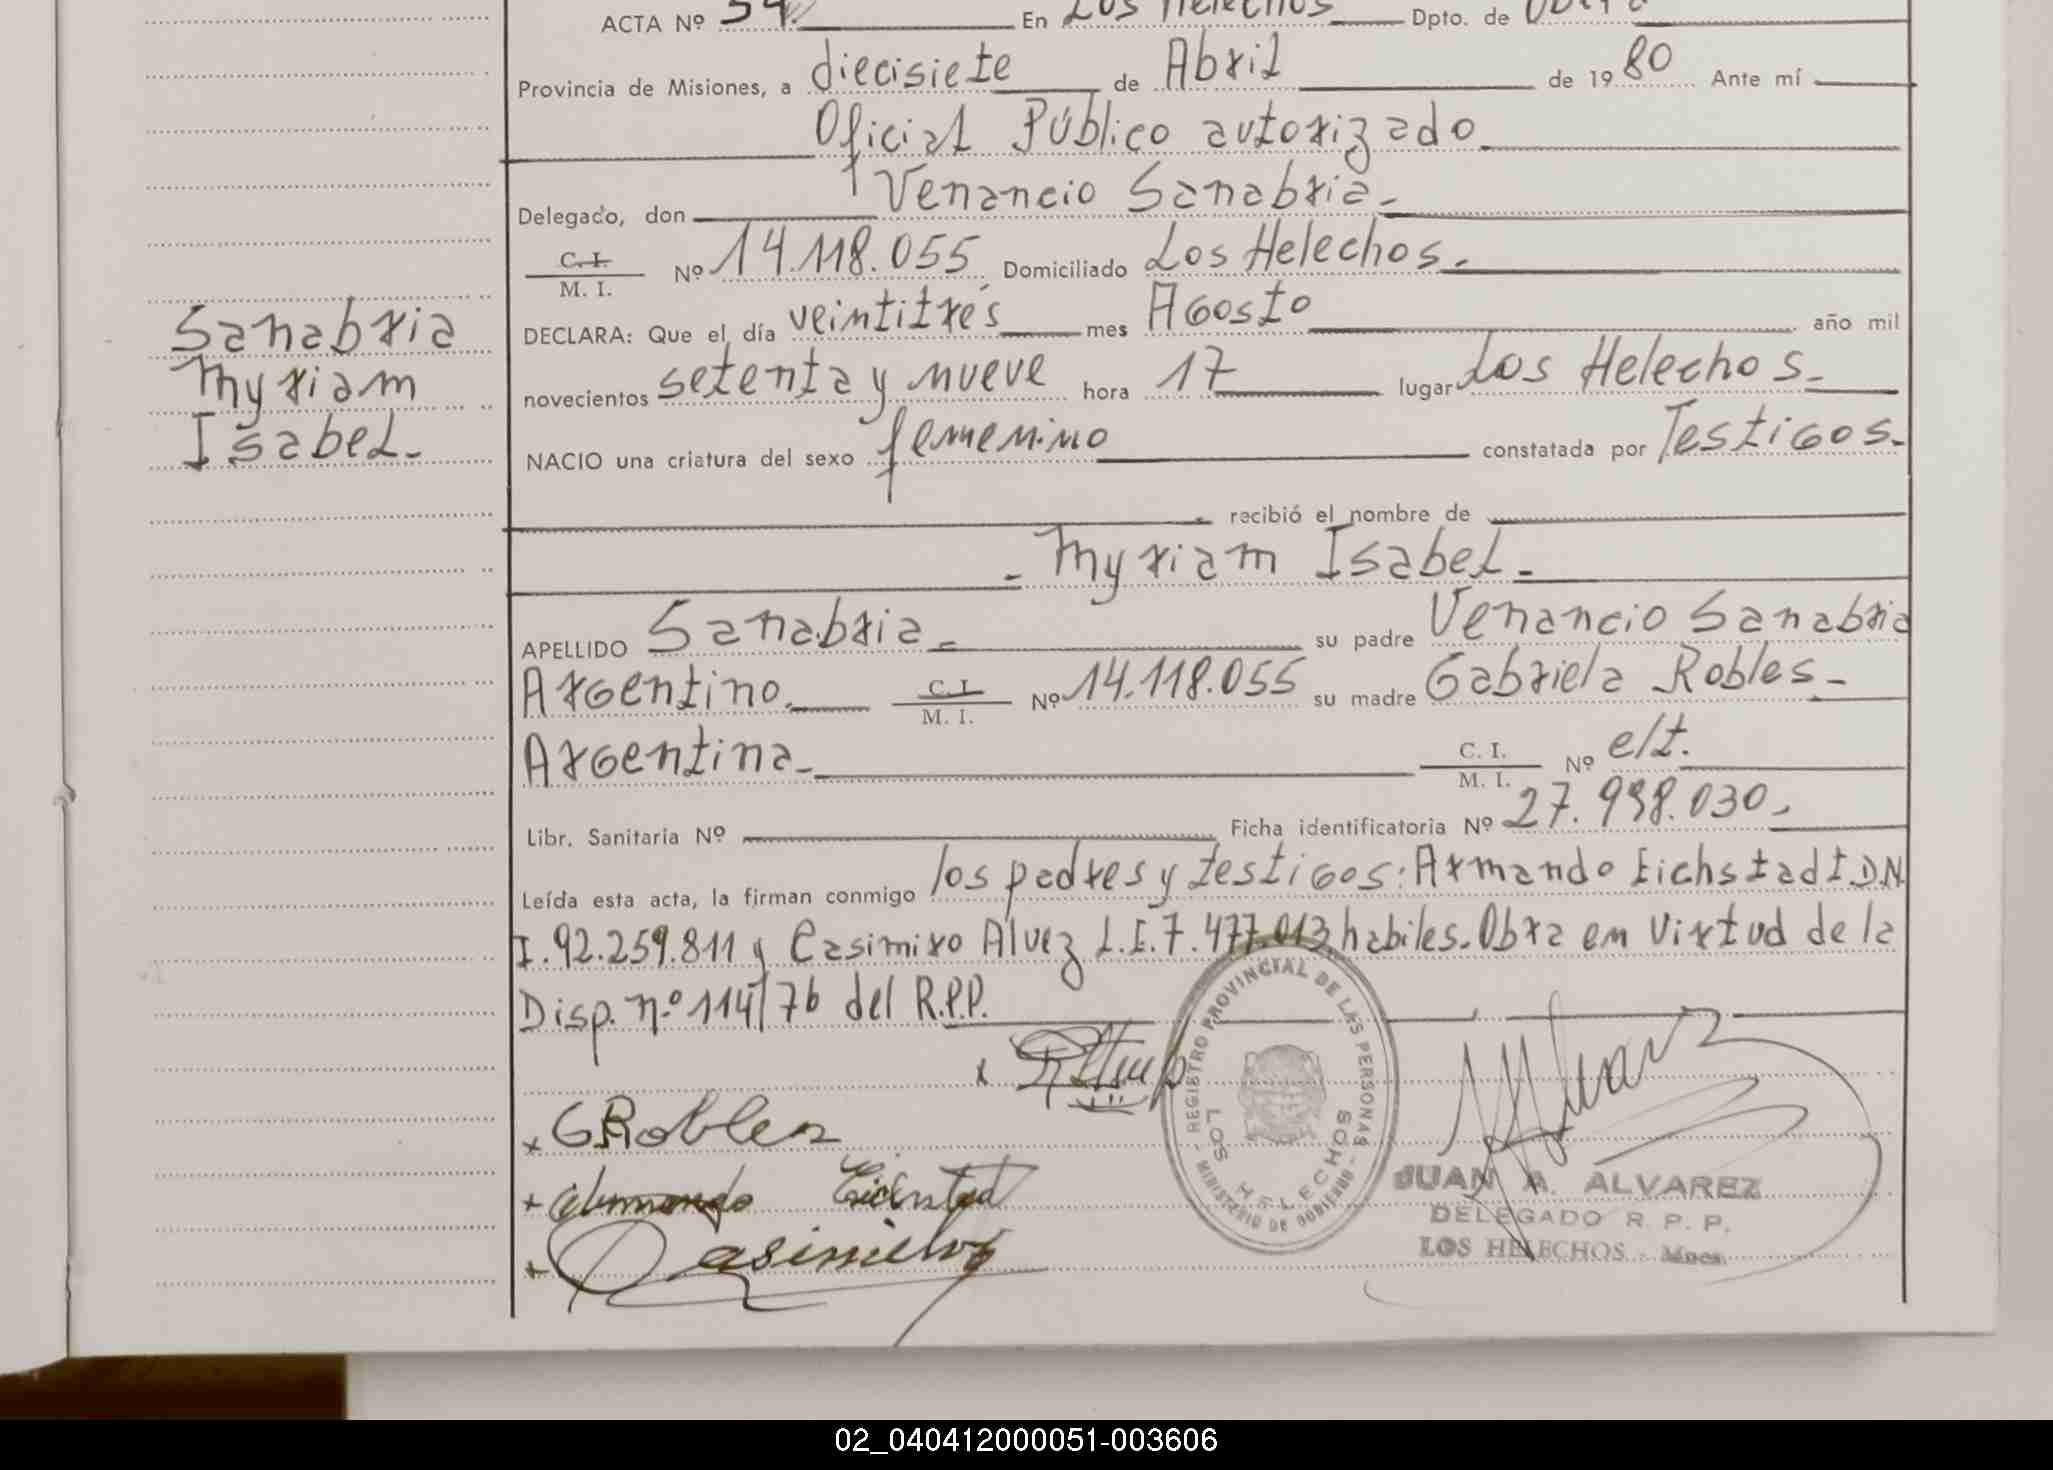 ACTA Nº 54. En Los Helechos Dpto. de Oberá
Provincia de Misiones, a diecisiete de Abril de 1980 Ante mí
Oficial Público autorizado
Delegado, don Venancio Sanabria.-
C. I. / M. I. Nº 14.118.055 Domiciliado Los Helechos.
DECLARA: Que el día veintitrés mes Agosto año mil
novecientos setenta y nueve hora 17 lugar Los Helechos.-
NACIO una criatura del sexo femenino constatada por Testigos.-
recibió el nombre de
- Myriam Isabel.-
APELLIDO Sanabria.- su padre Venancio Sanabria
Argentino. C. I. / M. I. Nº 14.118.055 su madre Gabriela Robles.-
Argentina.- C. I. / M. I. Nº e/t.
Libr. Sanitaria Nº Ficha identificatoria Nº 27.998.030.-
Leída esta acta, la firman conmigo los padres y testigos: Armando Eichstadt D.N.
I. 92.259.811 y Casimiro Alvez L.E. 7.477.013 habiles. Obra en virtud de la
Disp. n.º 114/76 del R.P.P.
Sanabria
Myriam
Isabel.-
x
x GRobles
x Armando Eichstad
x
REGISTRO PROVINCIAL DE LAS PERSONAS
- MINISTERIO DE GOBIERNO -
LOS HELECHOS
JUAN A. ALVAREZ
DELEGADO R. P. P.
LOS HELECHOS - Mnes.
02_040412000051-003606